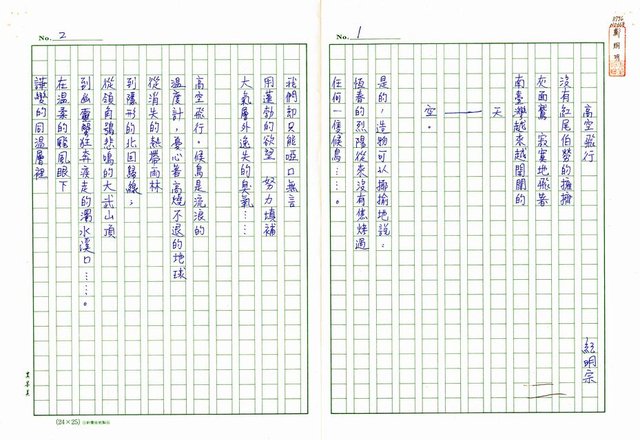 No. 1
高空飛行
紀明宗
沒有紅尾伯勞的擁擠
灰面鷲 寂寞地飛著
南臺灣越來越闊闊的
天
———
空。
是的,造物可以揶揄地說:
恆春的烈陽從來沒有焦烤過
任何一隻候鳥……。
No. 2
我們卻只能啞口無言
用蓬勃的欲望 努力填補
大氣層外逸失的臭氧……
高空飛行。候鳥是流浪的
溫度計,憂心著高燒不退的地球
從消失的熱帶雨林
到隱形的北回歸線;
從領角鴞悲鳴的大武山頂
到幽靈蟹狂奔疾走的濁水溪口……。
在溫柔的颱風眼下
譁變的同溫層裡
(24×25)